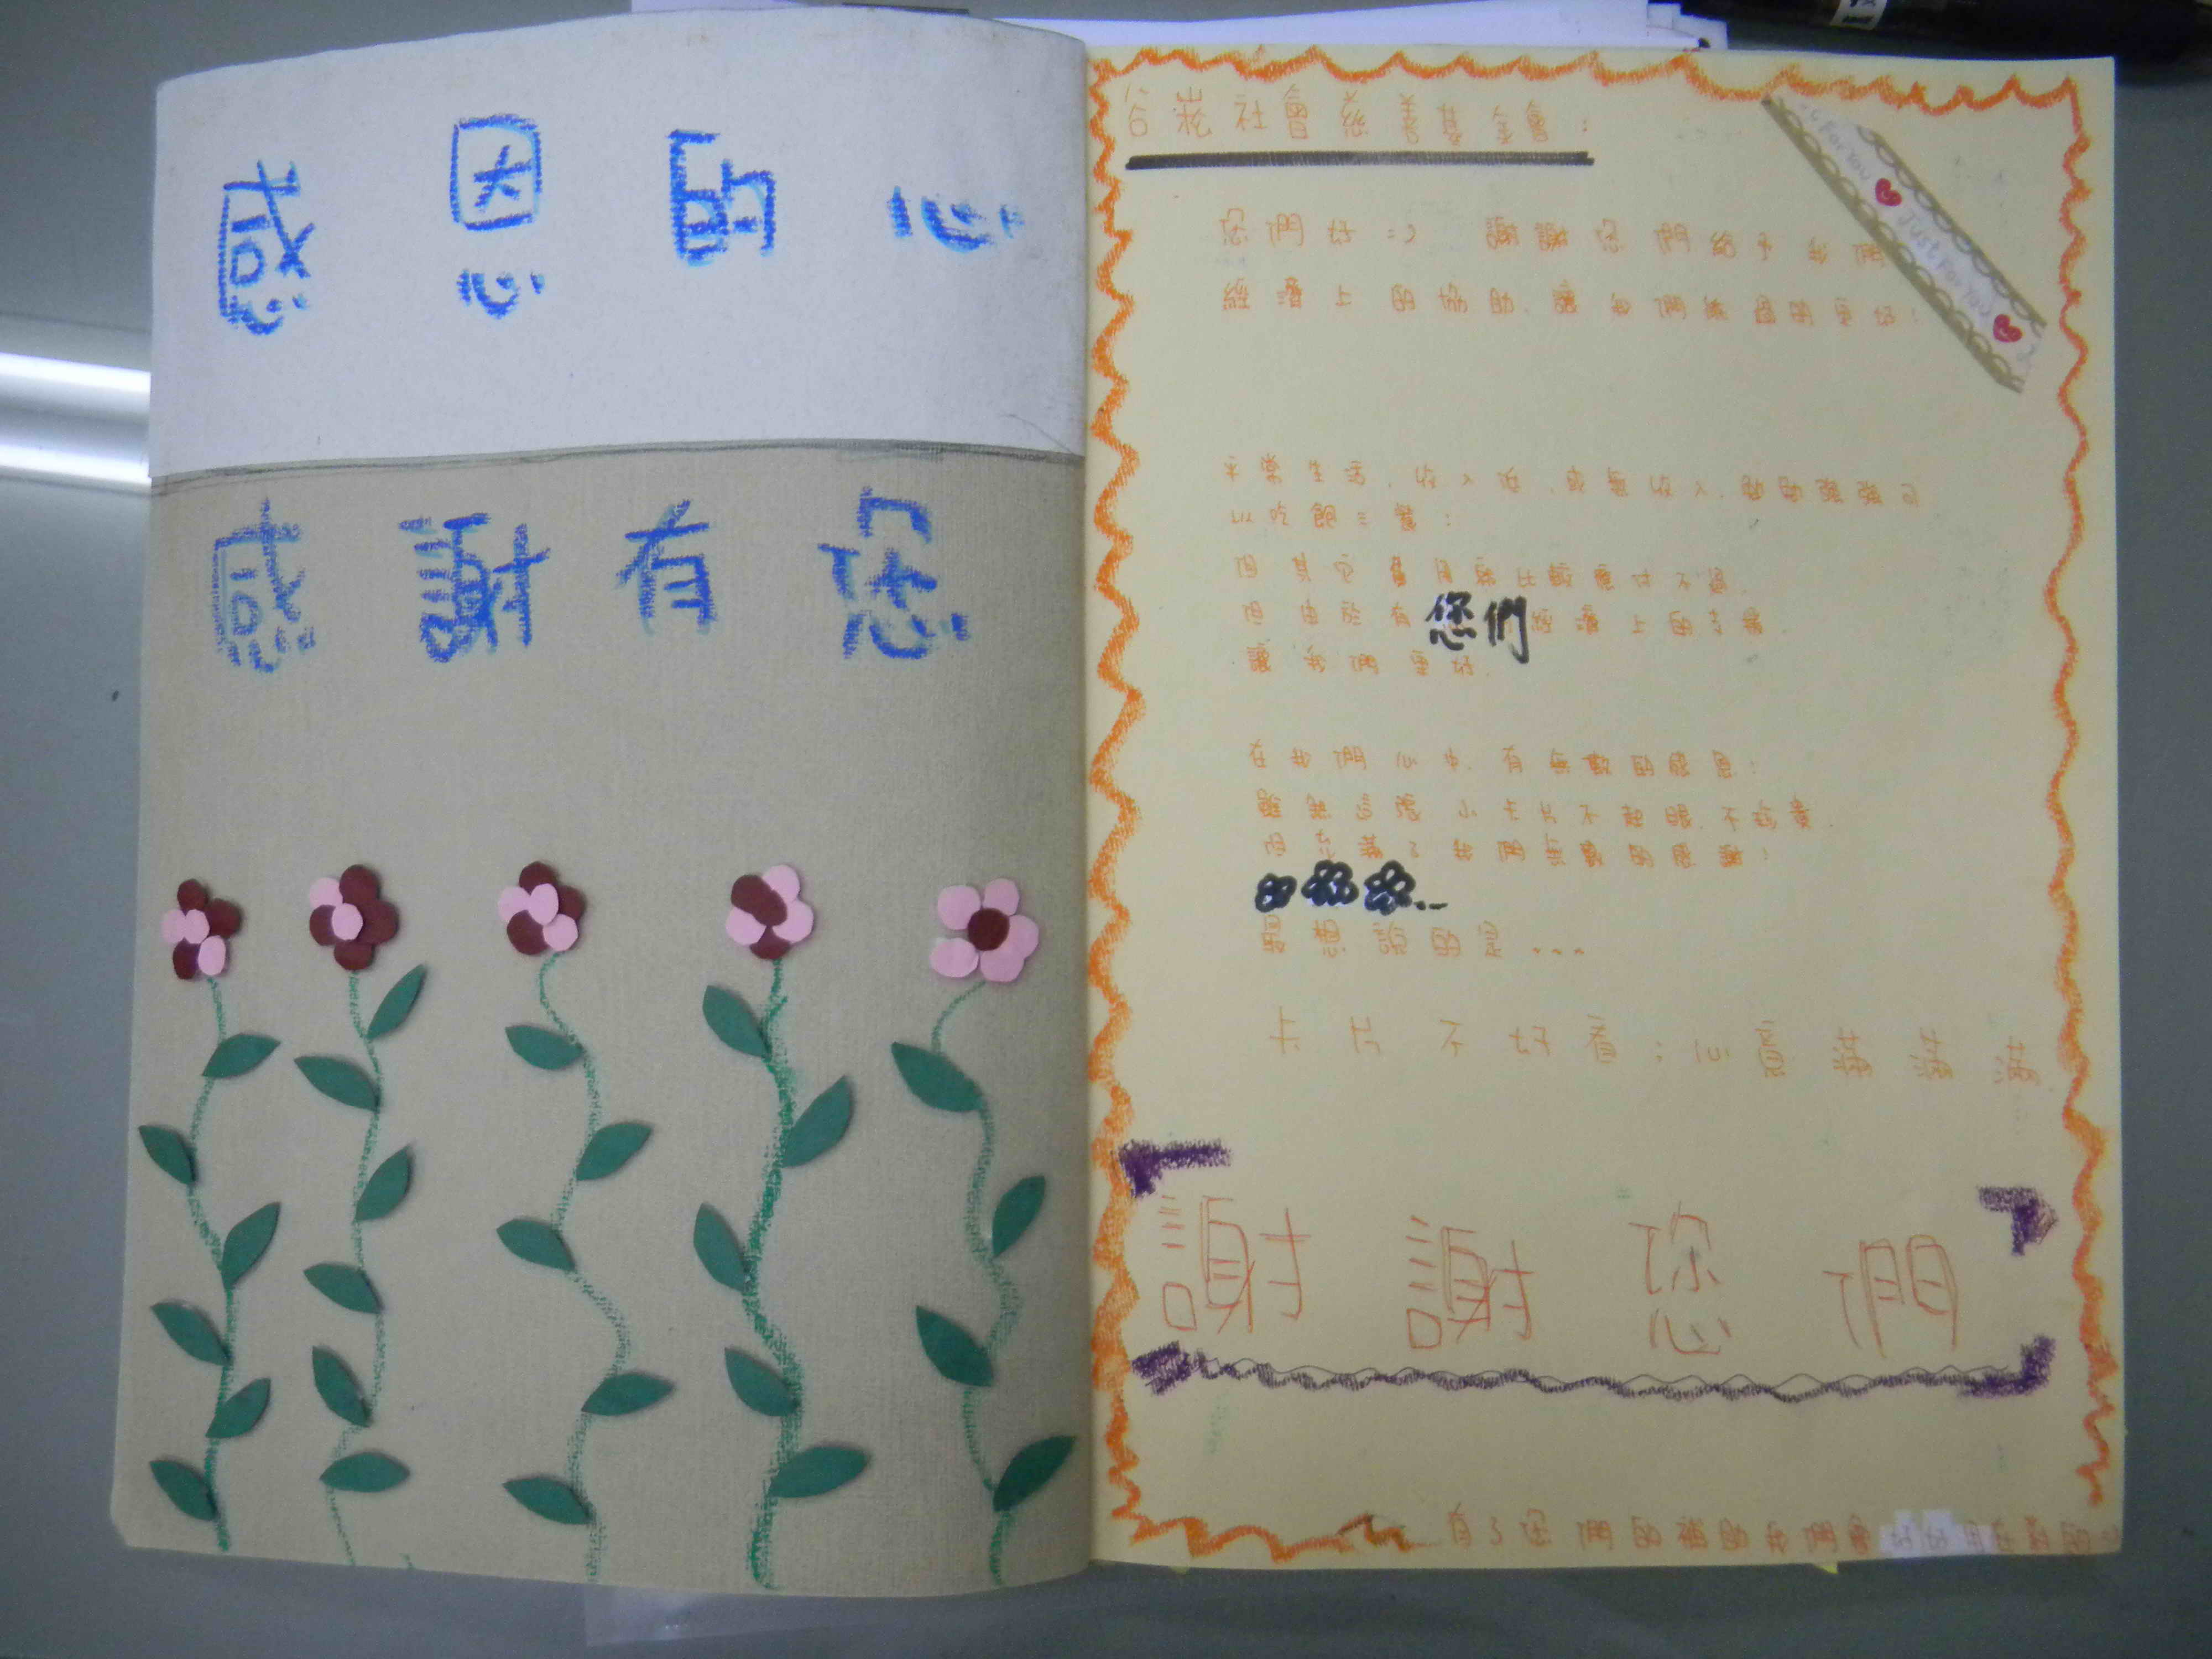 感恩的心
感謝有您
谷崧社會慈善基金會:
Just For You
您們好:) 謝謝您們給予我們
經濟上的協助,讓我們能過的更好!
平常生活,收入低,或無收入,勉勉強強可
以吃飽三餐;
但其它費用就比較應付不過,
但由於有您們經濟上的支援,
讓我們更好.
在我們心中,有無數的感恩;
雖然這張小卡片不起眼,不珍貴.
但充滿了我們無數的感謝,
想說的是...
卡片不好看;心意滿滿滿
謝謝您們
有了您們的補助我們會好好用在